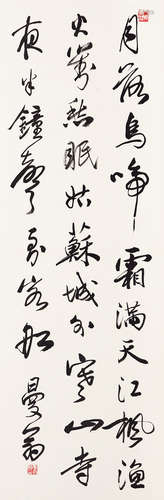 月落烏啼霜滿天江楓漁
火對愁眠姑蘇城外寒山寺
夜半鐘聲到客船 曼翁